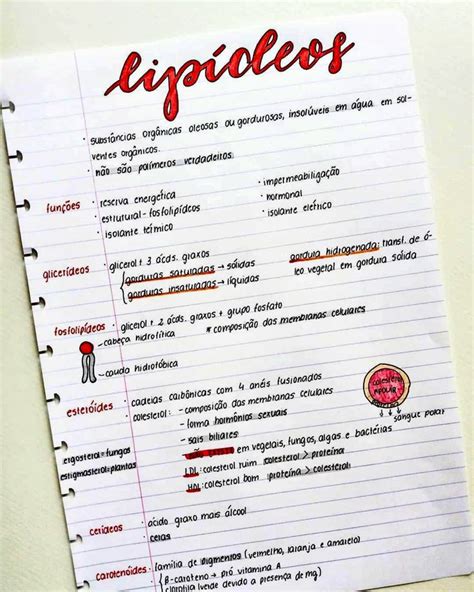 lipídeos
· substâncias orgânicas oleosas ou gordurosas, insolúveis em água em sol-
ventes orgânicos.
· não são polímeros verdadeiros
funções
· reserva energética
· estrutural - fosfolipídeos
· isolante térmico
· impermeabilização
· hormonal
· isolante elétrico
glicerídeos
· glicerol + 3 ácds. graxos
gorduras saturadas → sólidas
gorduras insaturadas → líquidas
gordura hidrogenada: transf. de ó-
leo vegetal em gordura sólida
fosfolipídeos
· glicerol + 2 ácds. graxos + grupo fosfato
- cabeça hidrofílica
* composição das membranas celulares
- cauda hidrofóbica
esteróides
· cadeias carbônicas com 4 anéis fusionados
· colesterol: - composição das membranas celulares
- forma hormônios sexuais
- sais biliares
- não em vegetais, fungos, algas e bactérias
LDL: colesterol ruim colesterol > proteína
HDL: colesterol bom proteína > colesterol
ergosterol = fungos
estigmasterol = plantas
colesterol
apolar
sangue polar
cerídeos
· ácido graxo mais álcool
· ceras
carotenóides
· família de pigmentos (vermelho, laranja e amarelo)
β-caroteno → pró vitamina A
clorofila (verde devido a presença de mg)